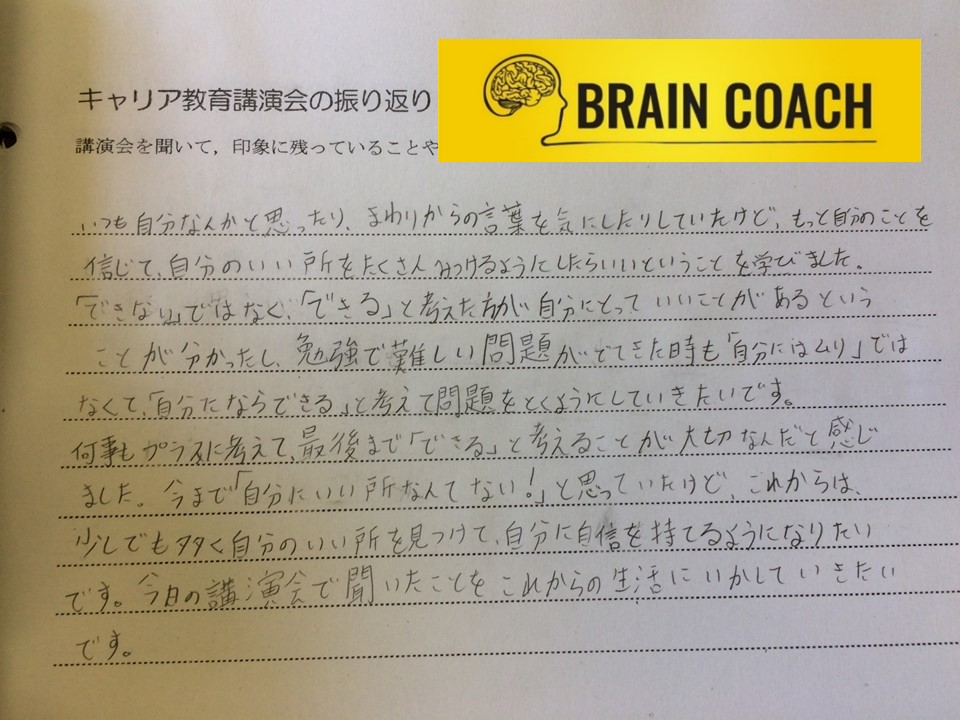 キャリア教育講演会の振り返り
BRAIN COACH
講演会を聞いて，印象に残っていることや
いつも自分なんかと思ったり、まわりからの言葉を気にしたりしていたけど、もっと自分のことを
信じて、自分のいい所をたくさんみつけるようにしたらいいということを学びました。
「できない」ではなく、「できる」と考えた方が自分にとっていいことがあるという
ことが分かったし、勉強で難しい問題がでてきた時も「自分にはムリ」では
なくて、「自分にならできる」と考えて問題をとくようにしていきたいです。
何事もプラスに考えて、最後まで「できる」と考えることが大切なんだと感じ
ました。今まで「自分にいい所なんてない！」と思っていたけど、これからは、
少しでも多く自分のいい所を見つけて、自分に自信を持てるようになりたい
です。今日の講演会で聞いたことをこれからの生活にいかしていきたい
です。